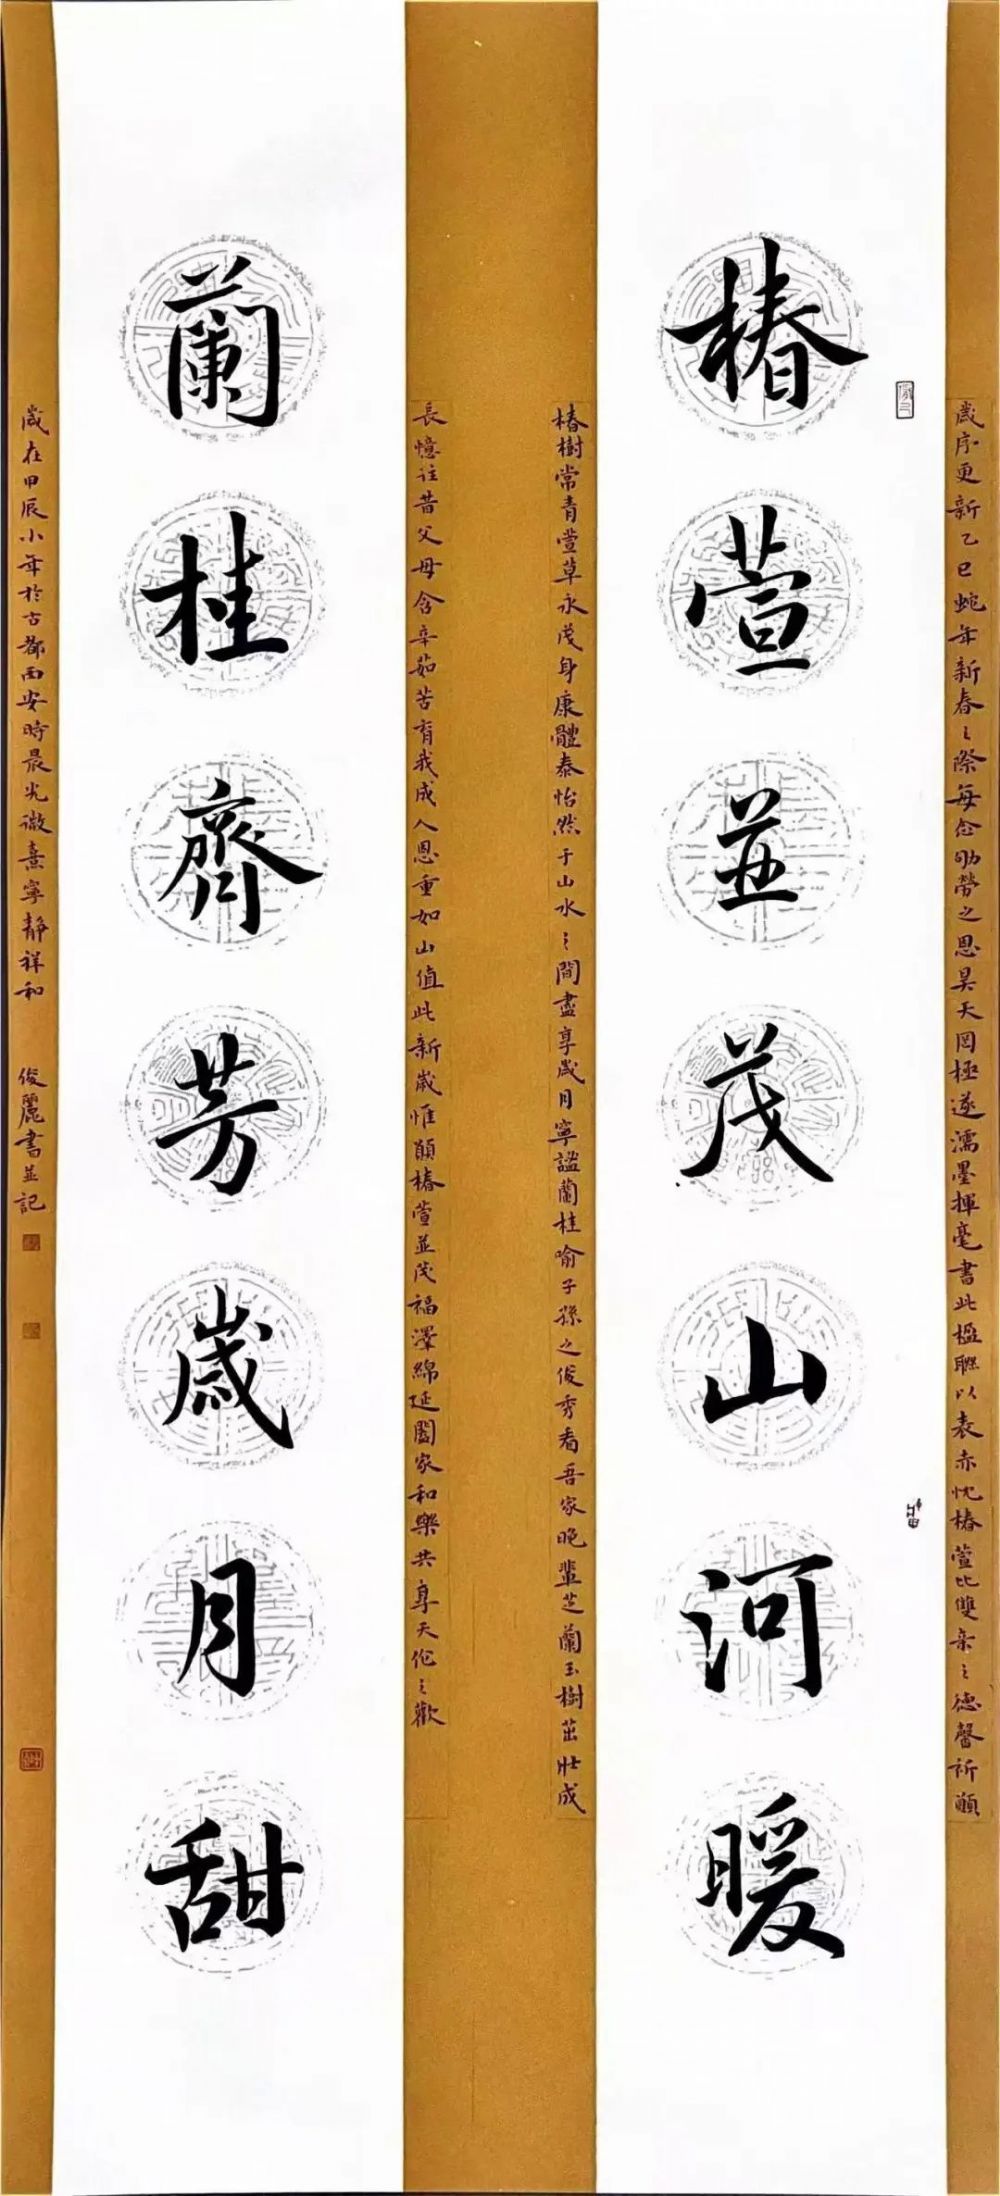 歲序更新乙巳蛇年新春之際每念劬勞之恩昊天罔極遂濡墨揮毫書此楹聯以表赤忱椿萱比雙亲之德馨祈願
椿萱並茂山河暖
椿樹常青萱草永茂身康體泰怡然于山水之間盡享歲月寧謐蘭桂喻子孫之俊秀看吾家晚輩芝蘭玉樹茁壯成
長憶往昔父母含辛茹苦育我成人恩重如山值此新歲惟願椿萱並茂福澤綿延闔家和樂共享天倫之歡
蘭桂齊芳歲月甜
歲在甲辰小年於古都西安時晨光微熹寧靜祥和 俊麗書並記